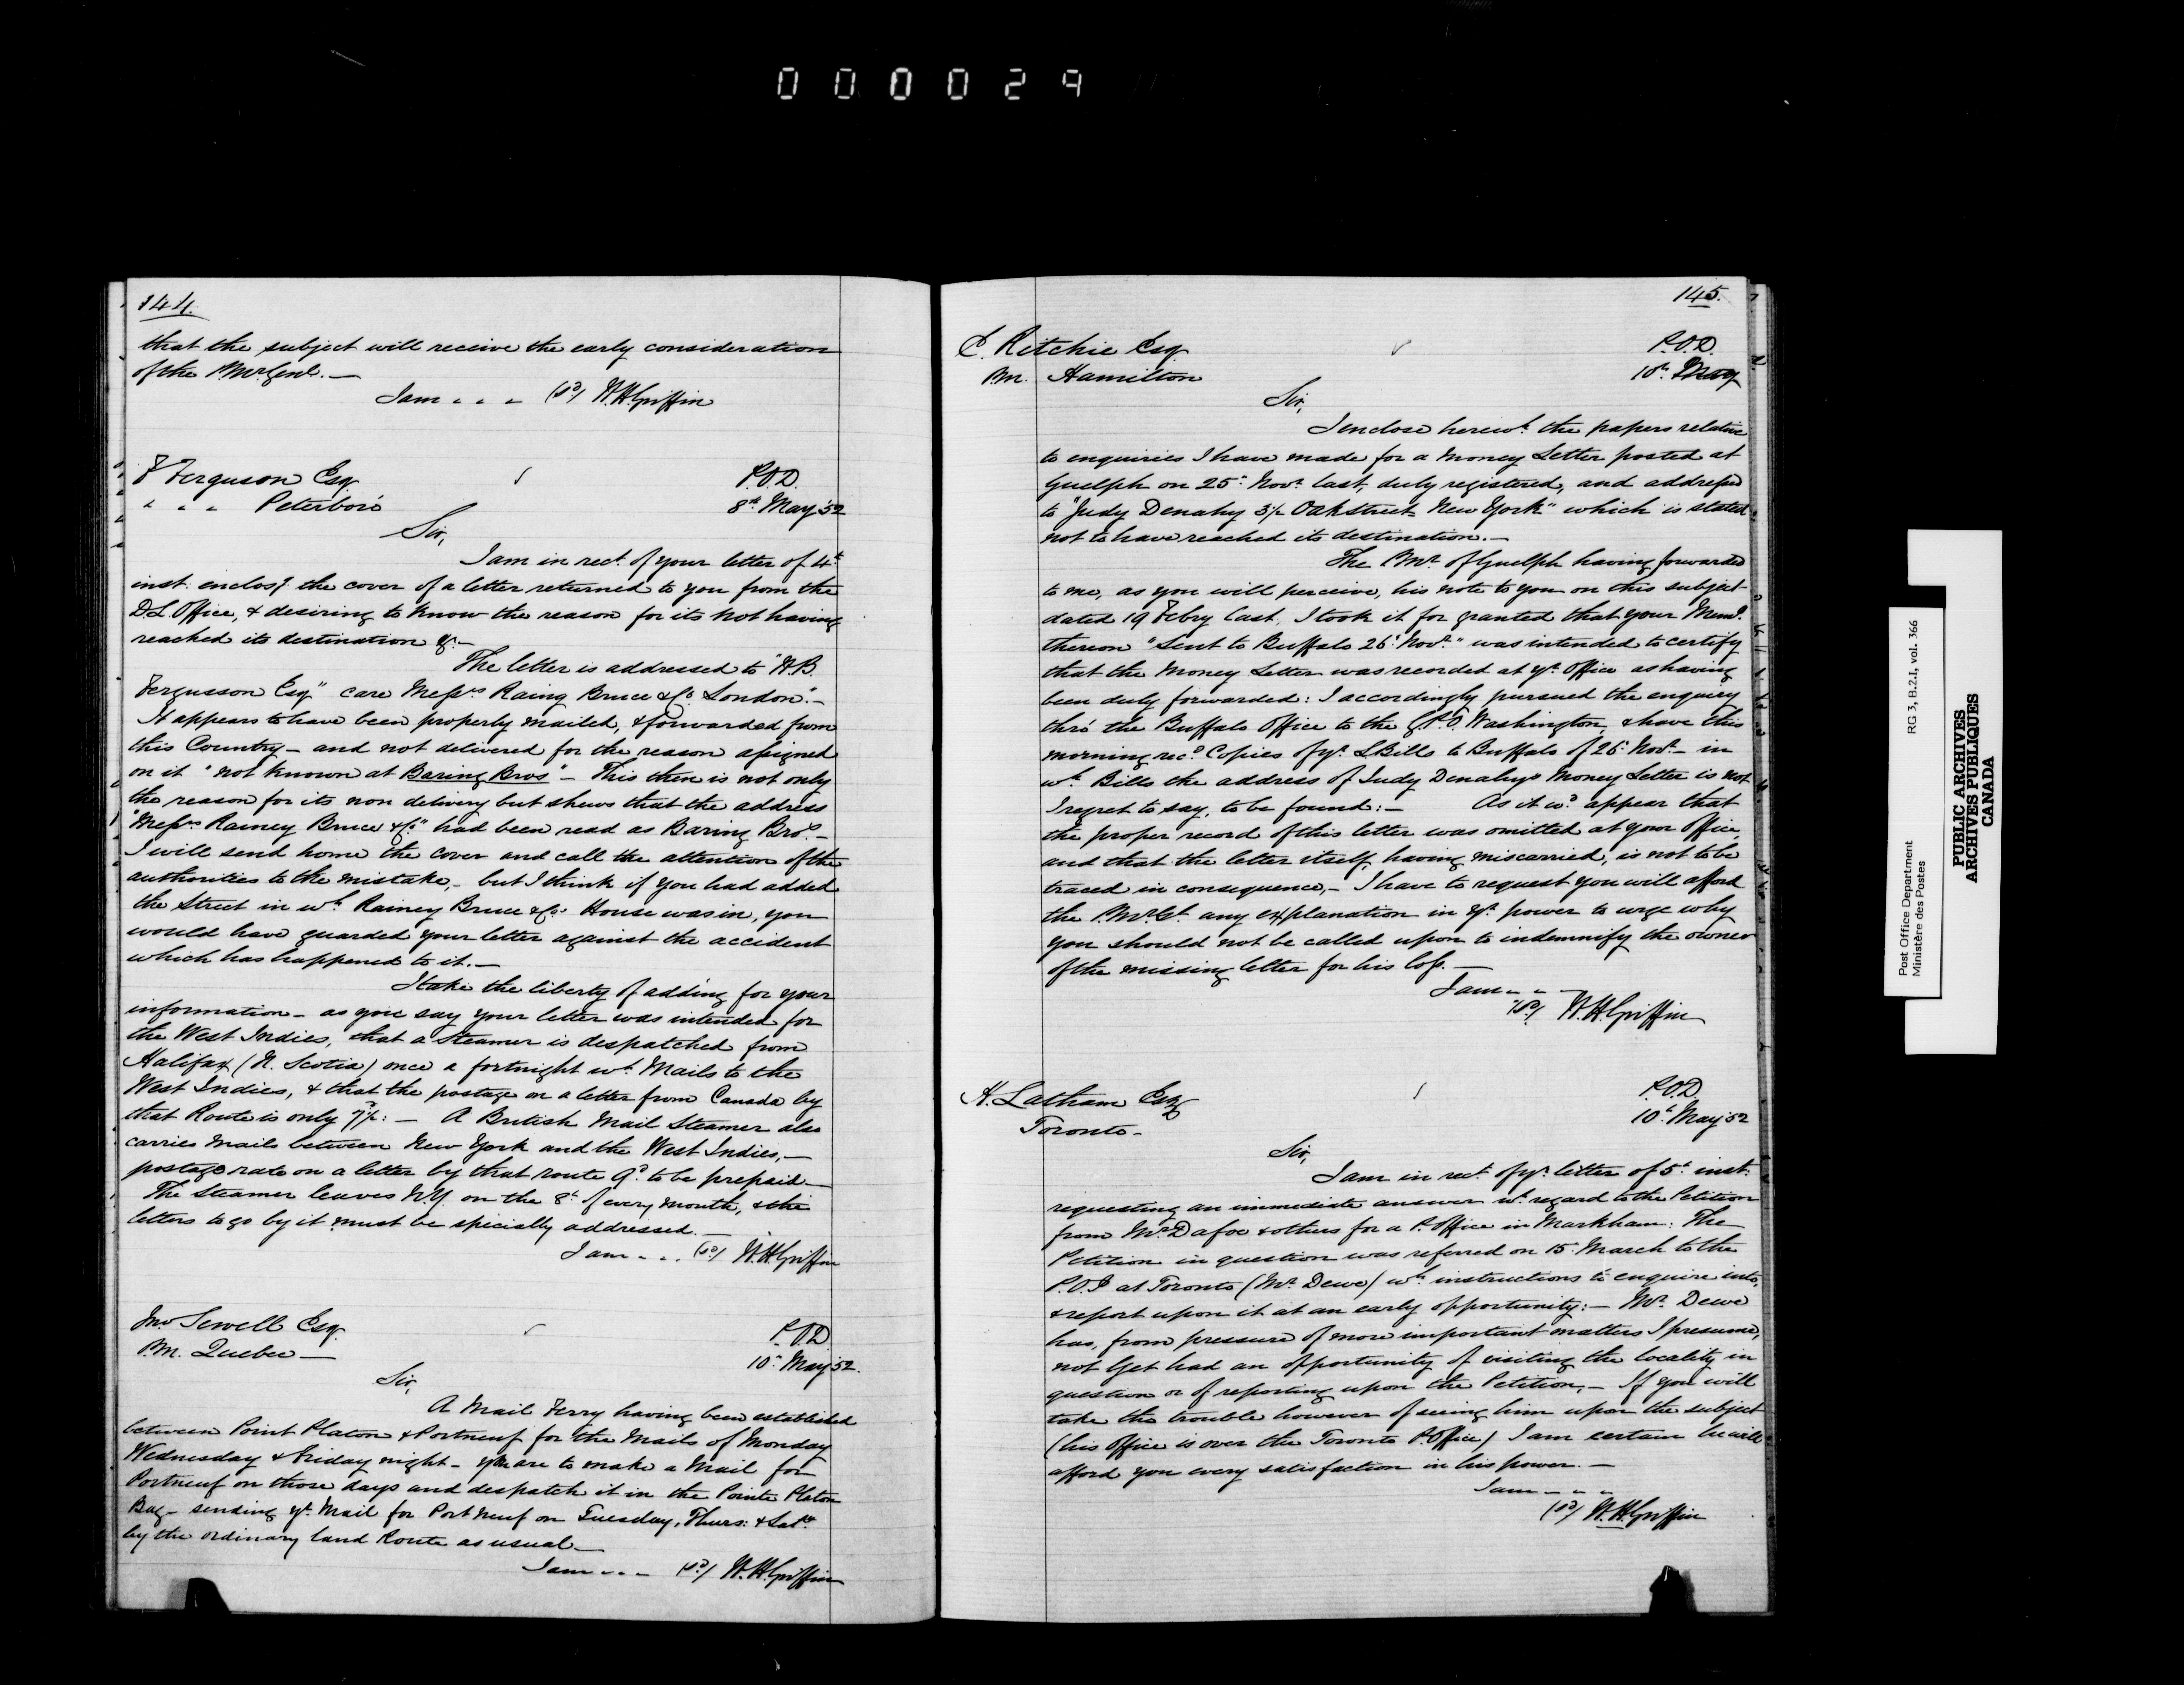 000029
144.
that the subject will receive the early consideration
of the P.Mr Genl. —
I am - - - (sd) W.H. Griffin
F Ferguson Esq
P.O.D.
" " " Peterboro'
8th May '52
Sir,
I am in rect. of your letter of 4th
inst: enclosg. the cover of a letter returned to you from the
D L Office, & desiring to know the reason for its not having
reached its destination &c. —
The letter is addressed to "H.B.
Fergusson Esq" care Messrs Raing Bruce & Co. London". —
It appears to have been properly mailed, & forwarded from
this Country — and not delivered for the reason assigned
on it "not known at Baring Bros" — This then is not only
the reason for its non delivery but shews that the address
"Messrs Rainey Bruce & Co." had been read as Baring Bros —
I will send home the cover and call the attention of the
authorities to the mistake, — but I think if you had added
the Street in wh. Rainey Bruce & Co.s House was in, you
would have guarded your letter against the accident
which has happened to it. —
I take the liberty of adding for your
information — as you say your letter was intended for
the West Indies, that a Steamer is despatched from
Halifax (N. Scotia) once a fortnight wh. Mails to the
West Indies, & that the postage on a letter from Canada by
that Route is only 7½d: — A British Mail Steamer also
carries Mails between New York and the West Indies, —
postage rate on a letter by that route 9d. to be prepaid —
The Steamer leaves N.Y. on the 8th of every month, & the
letters to go by it must be specially addressed. —
I am - - - (sd) W.H. Griffin
Jno Sewell Esq.
P.O.D.
P.M. Quebec —
10th May '52.
Sir,
A Mail Ferry having been established
between Point Platon & Portneuf for the Mails of Monday
Wednesday & Friday night — you are to make a Mail for
Portneuf on those days and despatch it in the Pointe Platon
Bag — sending yr. Mail for Port Neuf on Tuesday, Thurs: & Saty.
by the ordinary land Route as usual —
I am - - - (sd) W.H. Griffin
145.
E. Ritchie Esq
P.O.D.
P.M. Hamilton
10th May
Sir,
I enclose herewh. the papers relative
to enquiries I have made for a Money Letter posted at
Guelph on 25th Novr. last, duly registered, and addressed
to "Judy Denahy 3½ Oak Street New York" which is stated
not to have reached its destination. —
The P Mr. of Guelph having forwarded
to me, as you will perceive, his note to you on this subject
dated 19 Febry last, I took it for granted that your Memo.
thereon "Sent to Buffalo 26th Novr." was intended to certify
that the Money Letter was recorded at yr. Office as having
been duly forwarded: I accordingly pursued the enquiry
thro' the Buffalo Office to the G.P.O. Washington, & have this
morning recd. Copies of yr. L Bills to Buffalo of 26th Novr. — in
wh. Bills the address of Judy Denahy's Money Letter is not
I regret to say, to be found: — As it wd. appear that
the proper record of this letter was omitted at your Office,
and that the letter itself, having miscarried, is not to be
traced in consequence, — I have to request you will afford
the P.Mr. Gl. any explanation in yr. power to urge why
you should not be called upon to indemnify the owner
of the missing letter for his loss. —
I am - - -
(sd) W.H. Griffin
H. Latham Esq
P.O.D.
Toronto —
10th May '52
Sir,
I am in rect. of yr. letter of 5th inst.
requesting an immediate answer wh. regard to the Petition
from Mr. Dafoe & others for a P. Office in Markham: The
Petition in question was referred on 15th March to the
P.O.I at Toronto (Mr. Dewe) wh. instructions to enquire into,
& report upon it at an early opportunity: — Mr. Dewe
has, from pressure of more important matters I presume,
not yet had an opportunity of visiting the locality in
question or of reporting upon the Petition, — If you will
take the trouble however of seeing him upon the subject
(his Office is over the Toronto P. Office) I am certain he will
afford you every satisfaction in his power. —
I am - - -
(sd) W.H. Griffin
Post Office Department
Ministère des Postes
RG 3, B.2.I, vol. 366
PUBLIC ARCHIVES
ARCHIVES PUBLIQUES
CANADA